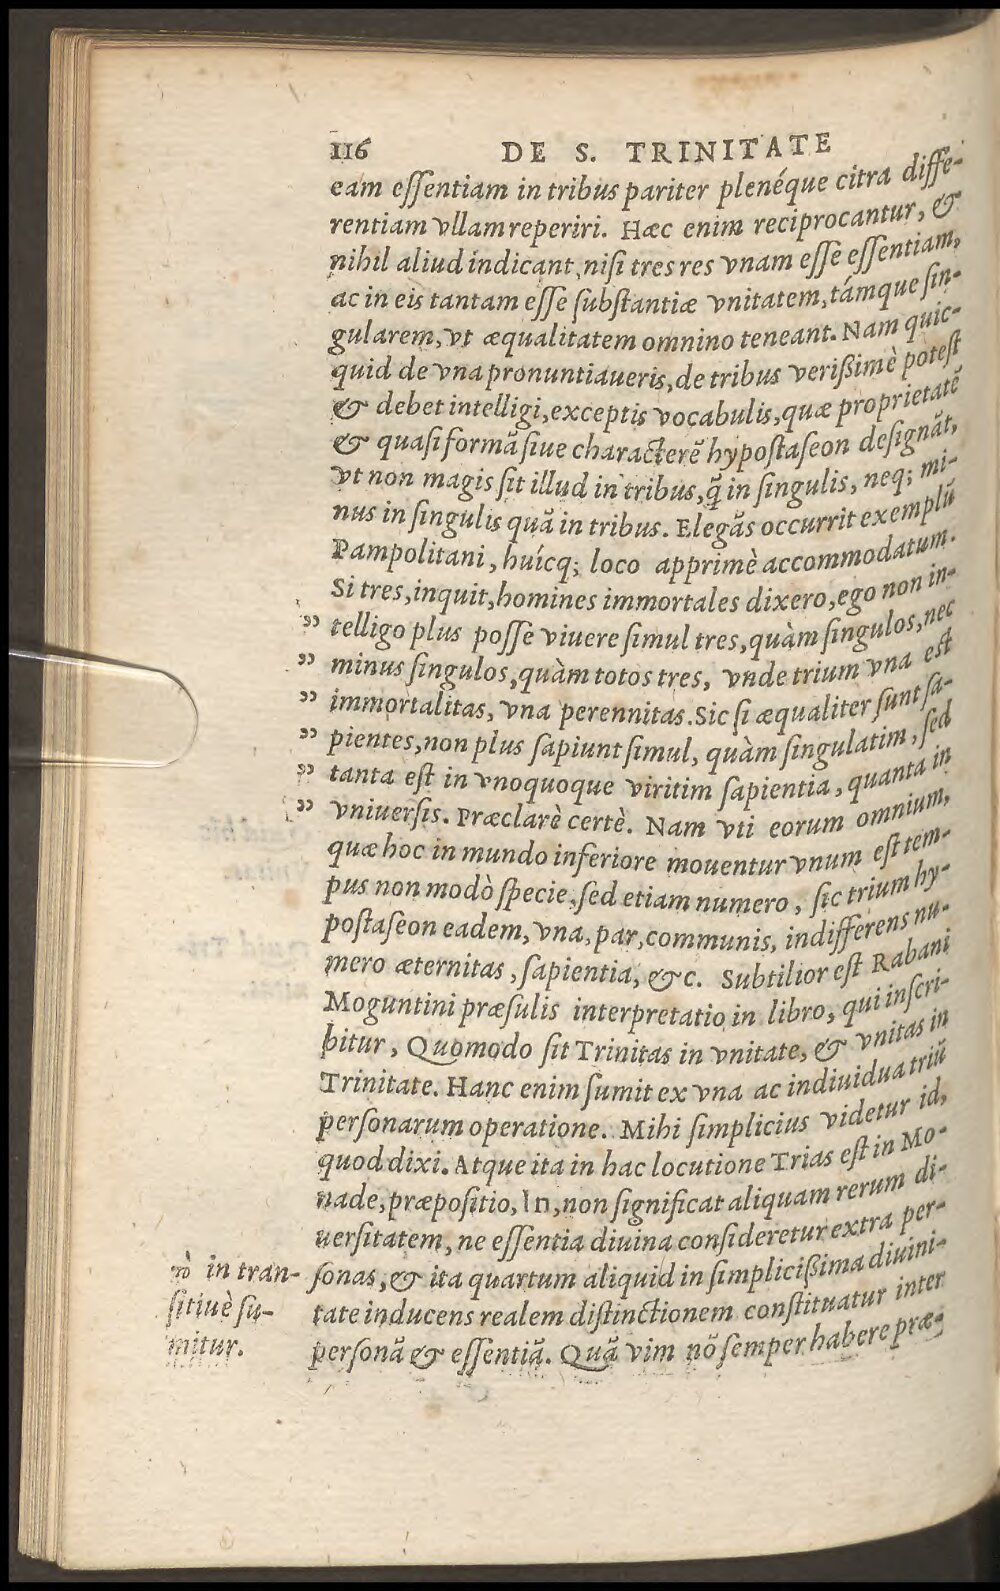 116 DE S. TRINITATE
eam eſſentiam in tribus pariter plenéque citra diffe-
rentiam vllam reperiri. Hæc enim reciprocantur, &
nihil aliud indicant, niſi tres res vnam eſſe eſſentiam,
ac in eis tantam eſſe ſubſtantiæ vnitatem, támque ſin-
gularem, vt æqualitatem omnino teneant. Nam quic-
quid de vna pronuntiaueris, de tribus verißimè poteſt
& debet intelligi, exceptis vocabulis, quæ proprietatẽ
& quaſi formã ſiue characterẽ hypoſtaſeon deſignãt,
vt non magis ſit illud in tribus, q̃ in ſingulis, neq; mi-
nus in ſingulis quã in tribus. Elegãs occurrit exemplũ
Pampolitani, huícq; loco apprimè accommodatum.
Si tres, inquit, homines immortales dixero, ego non in-
„ telligo plus poſſe viuere ſimul tres, quàm ſingulos, nec
„ minus ſingulos, quàm totos tres, vnde trium vna eſt
„ immortalitas, vna perennitas. Sic ſi æqualiter ſunt ſa-
„ pientes, non plus ſapiunt ſimul, quàm ſingulatim, ſed
„ tanta eſt in vnoquoque viritim ſapientia, quanta in
„ vniuerſis. Præclarè certè. Nam vti eorum omnium,
quæ hoc in mundo inferiore mouentur vnum eſt tem-
pus non modò ſpecie, ſed etiam numero, ſic trium hy-
poſtaſeon eadem, vna, par, communis, indifferens nu-
mero æternitas, ſapientia, &c. Subtilior eſt Rabani
Moguntini præſulis interpretatio in libro, qui inſcri-
bitur, Quomodo ſit Trinitas in vnitate, & vnitas in
Trinitate. Hanc enim ſumit ex vna ac indiuidua triũ
perſonarum operatione. Mihi ſimplicius videtur id,
quod dixi. Atque ita in hac locutione Trias eſt in Mo-
nade, præpoſitio, In, non ſignificat aliquam rerum di-
uerſitatem, ne eſſentia diuina conſideretur extra per-
ſonas, & ita quartum aliquid in ſimplicißima diuini-
tate inducens realem diſtinctionem conſtituatur inter
perſonã & eſſentiã. Quã vim nõ ſemper habere præ-
in tran-
ſitiuè ſu-
mitur.